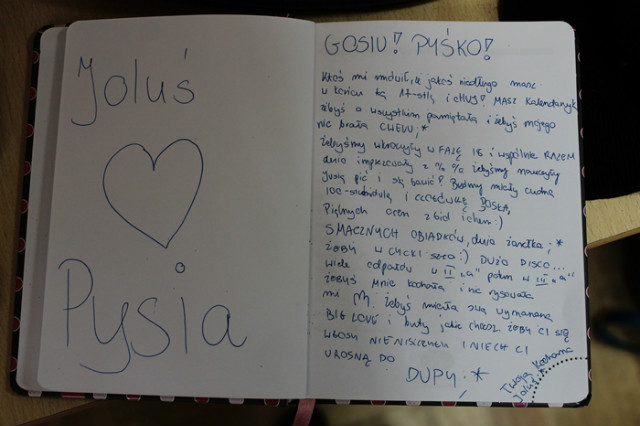 Joluś
Pysia
GOSIU! PYŚKO!
Ktoś mi mówił, że jakoś niedługo masz
w końcu tą 17-stkę i ChUJ! MASZ Kalendarzyk
żebyś o wszystkim pamiętała i żebyś mojego
nie brała CHEWU ;*
żebyśmy wkroczyły w FALĘ 18 i wspólnie RAZEM
dużo imprezowały z % % żebyśmy nauczyły
pić i się bawić! Żebyśmy miały cudną
100-dniówkę i BOSKĄ,
Pięknych ocen z biol i chem :)
SMACZNYCH OBIADKÓW, dużo ;*
żebyś W CYCKI szło :) DUŻO DISCO...
Wiele odpałów w III "a" potem w "a"
żebyś mnie kochała i nie rysowała
mi żebyś miała swą wymarzoną
BIG LOVE i buty jakie chcesz żeby CI SIĘ
WŁOSY NIE NISZCZYŁY I NIECH CI
UROSNĄ DO
DUPY :*
Twoja Kochana
Joluś